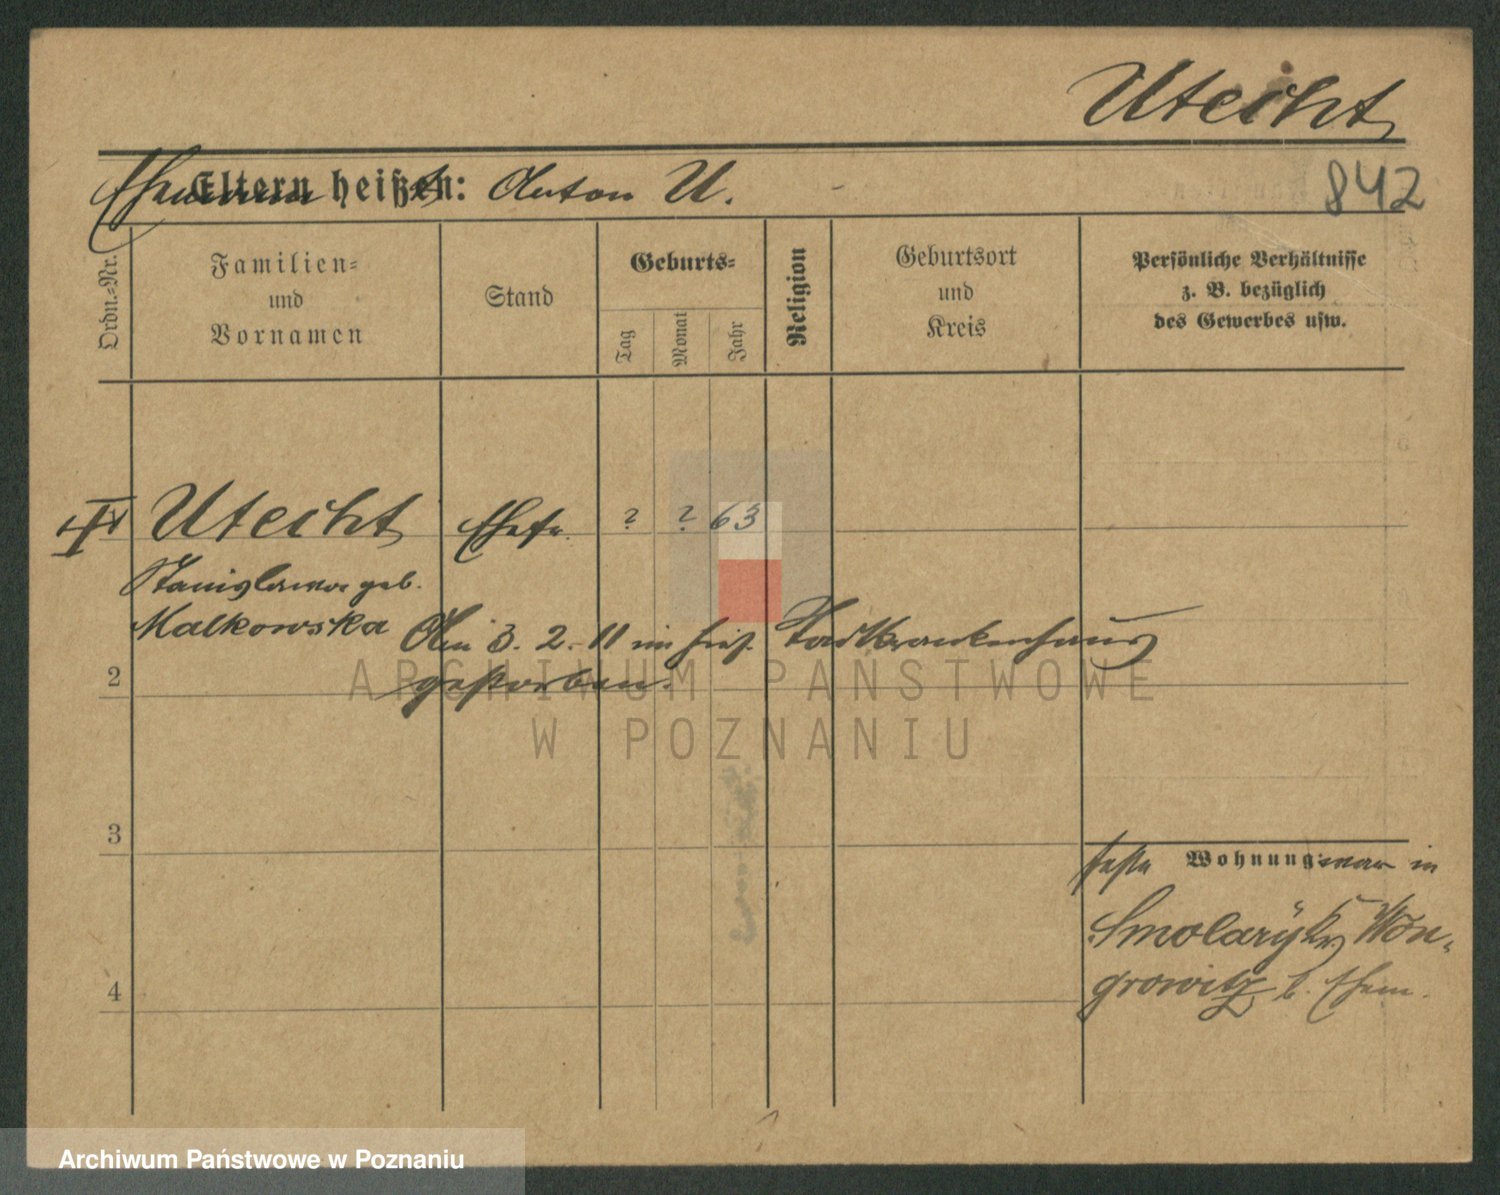 Utecht
Ehemann heißt: Anton U.
842
Ordn.-Nr.
Familien-
und
Vornamen
Stand
Geburts-
Tag
Monat
Jahr
Religion
Geburtsort
und
Kreis
Persönliche Verhältnisse
z. B. bezüglich
des Gewerbes usw.
Utecht Ehefr. ? ? 63
Stanislawa geb.
Malkowska
Am 3. 2. 11 im hies. Stadtkrankenhaus
gestorben.
2
3
4
feste Wohnung war in
Smolary Kr. Won-
growitz b. Ehem.
ARCHIWUM PAŃSTWOWE
W POZNANIU
Archiwum Państwowe w Poznaniu